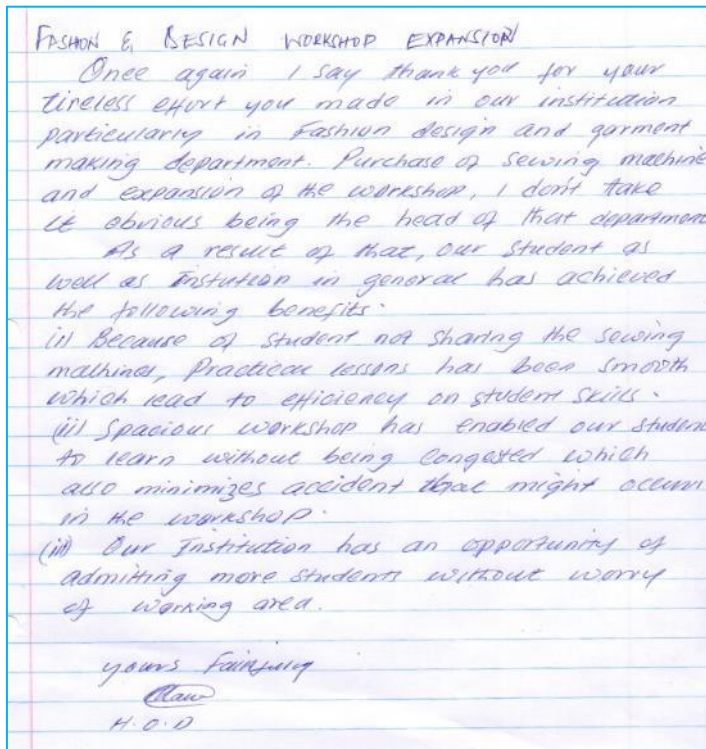 FASHON & DESIGN WORKSHOP EXPANSION
Once again I say thank you for your
tireless effort you made in our institution
particularly in Fashion design and garment
making department. Purchase of sewing machine
and expansion of the workshop, I don't take
it obvious being the head of that department
As a result of that, our student as
well as Instution in general has achieved
the following benefits.
(i) Because of student not sharing the sewing
machines, Practical lessons has been smooth
which lead to efficiency on student skills.
(ii) Spacious workshop has enabled our student
to learn without being congested which
also minimizes accident that might occur
in the workshop.
(iii) Our Institution has an opportunity of
admitting more students without worry
of working area.
yours
H.O.D